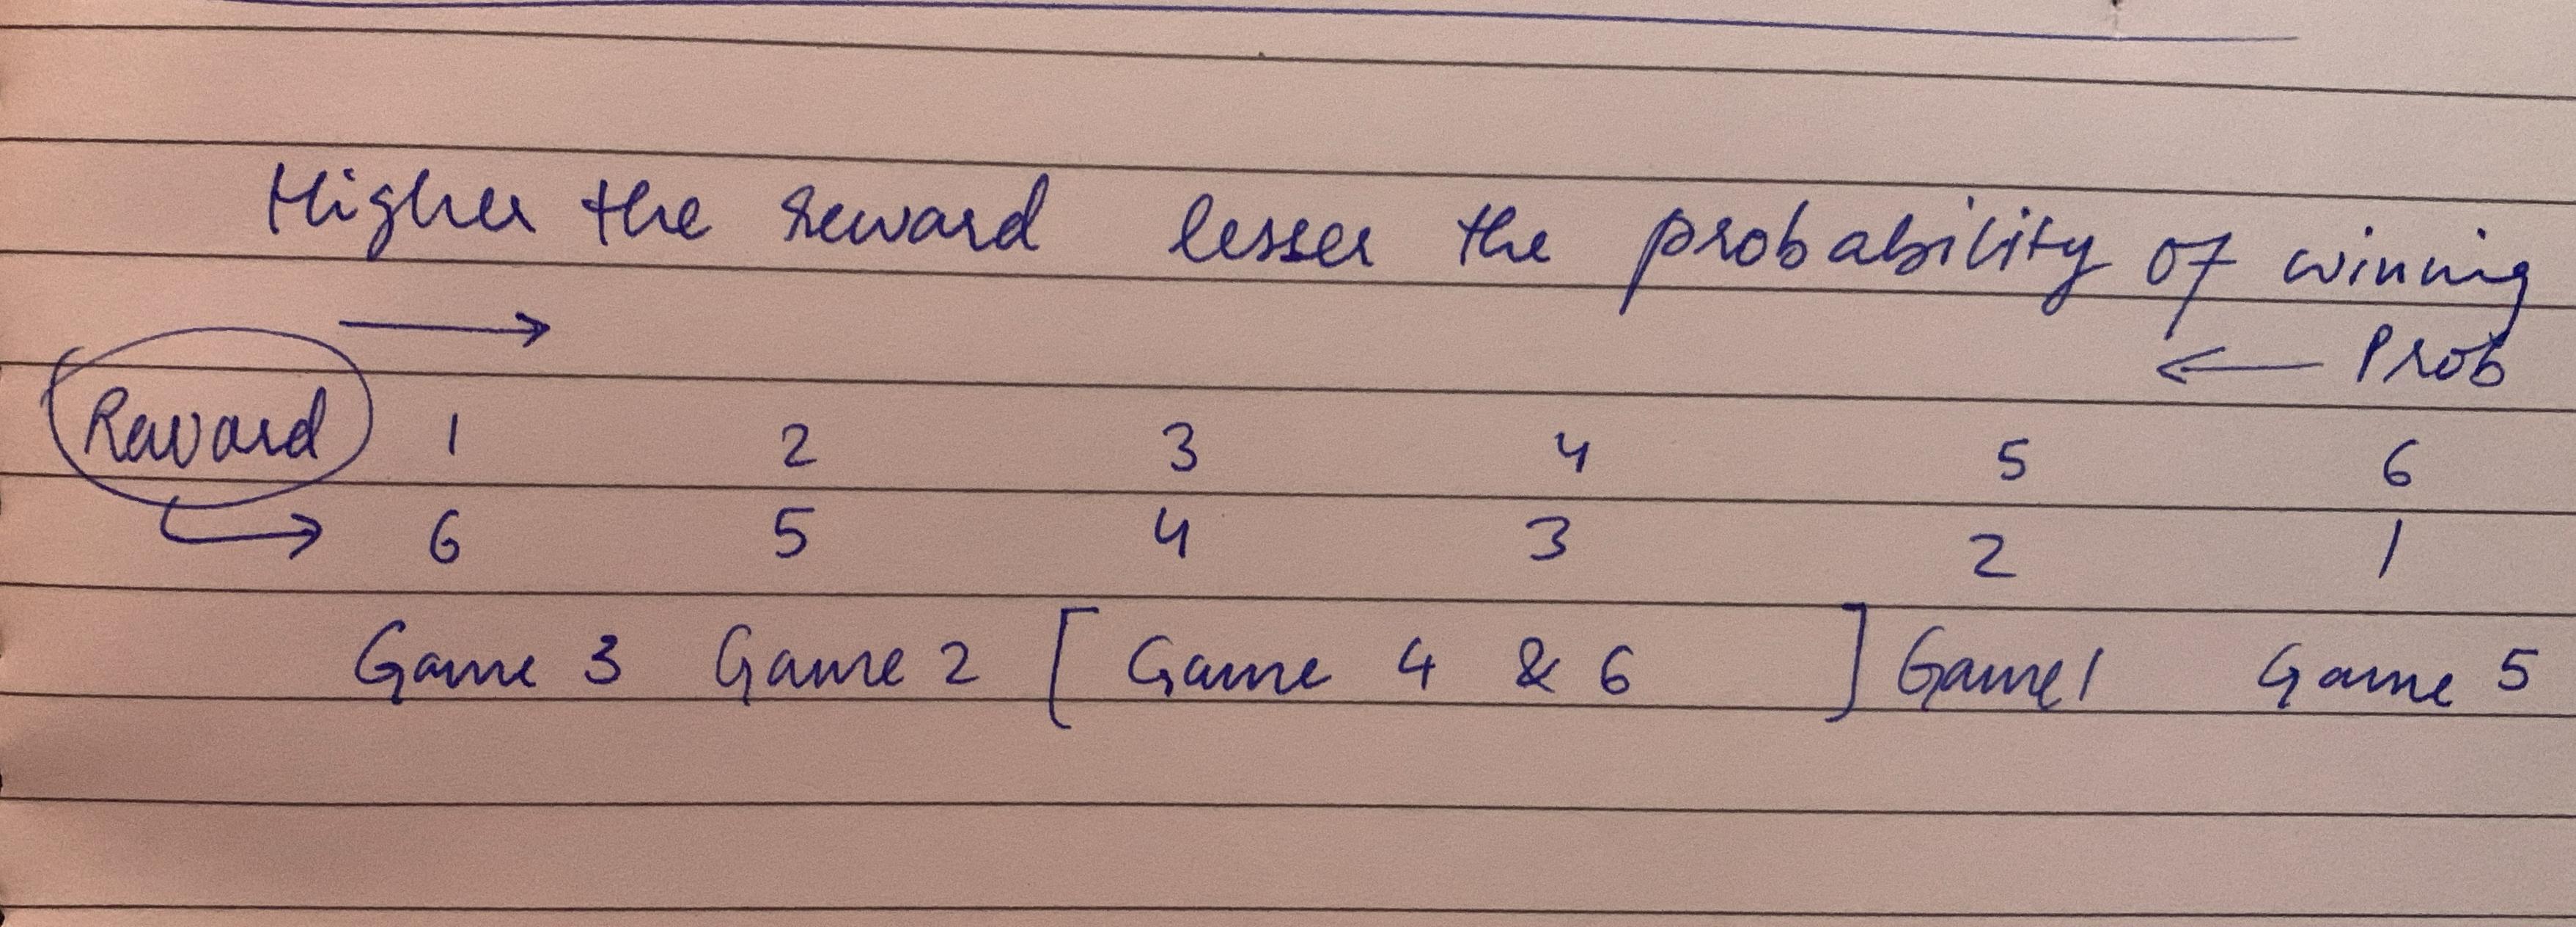 Higher the reward lesser the probability of winning
→ ← Prob
Reward 1 2 3 4 5 6
→ 6 5 4 3 2 1
Game 3 Game 2 [ Game 4 & 6 ] Game 1 Game 5